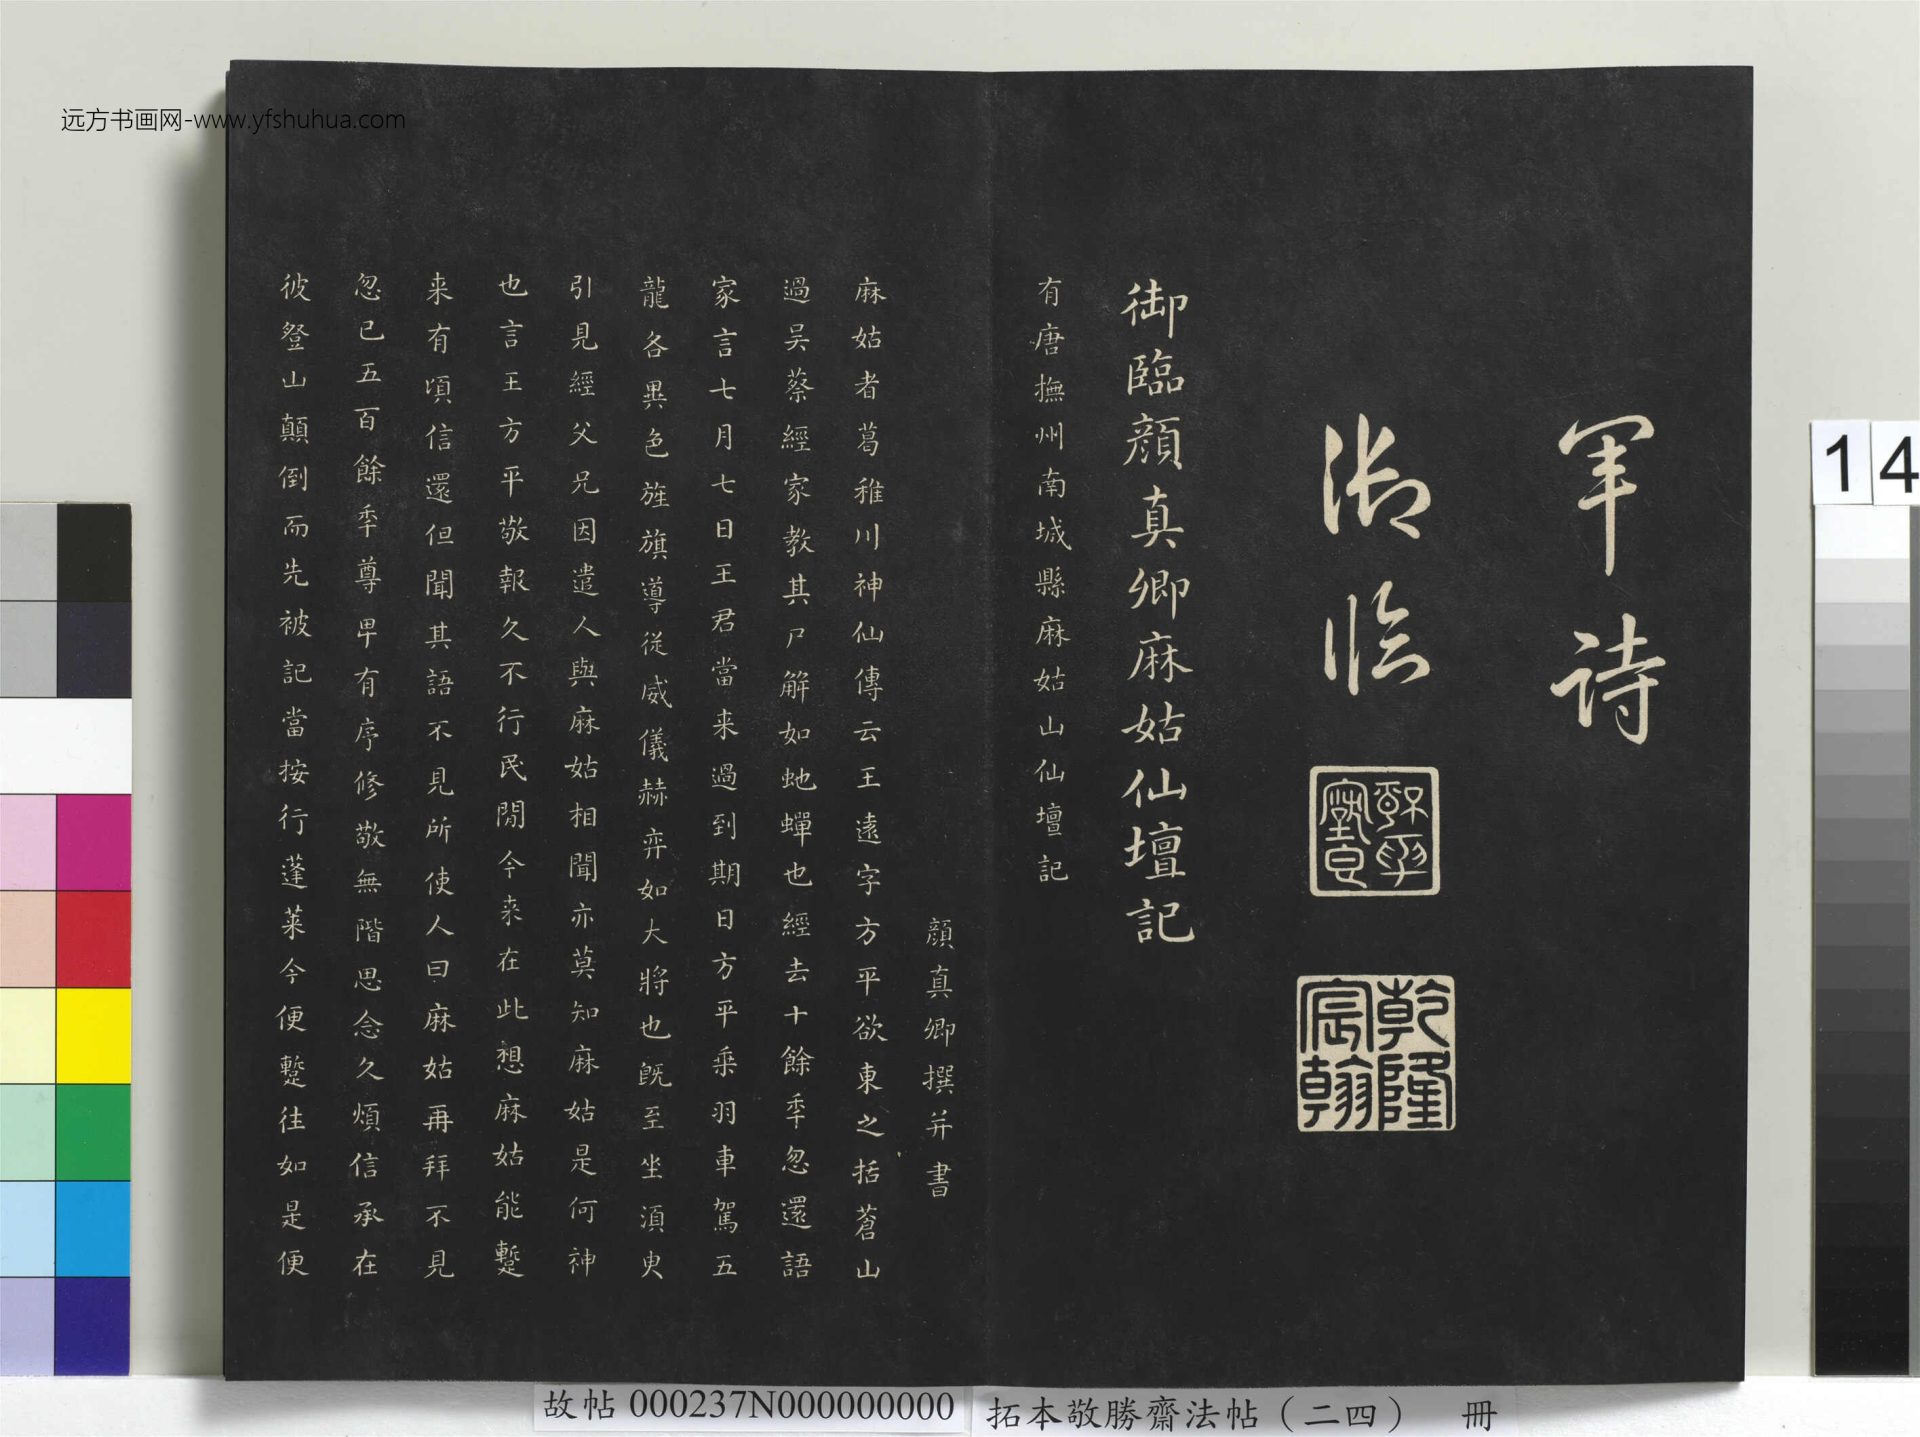 远方书画网-www.yfshuhua.com
軍詩
御臨
乾隆宸翰
御臨顔真卿麻姑仙壇記
有唐撫州南城縣麻姑山仙壇記
顔真卿撰并書
麻姑者葛稚川神仙傳云王遠字方平欲東之括蒼山
過吴蔡經家教其尸解如虵蟬也經去十餘秊忽還語
家言七月七日王君當来過到期日方平乗羽車駕五
龍各異色旌旗導従威儀赫弈如大將也既至坐湏臾
引見經父兄因遣人與麻姑相聞亦莫知麻姑是何神
也言王方平敬報久不行民間今来在此想麻姑能蹔
来有頃信還但聞其語不見所使人曰麻姑再拜不見
忽已五百餘秊尊卑有序修敬無階思念久煩信承在
彼登山顛倒而先被記當按行蓬莱今便蹔往如是便
14
故帖 000237N000000000
拓本敬勝齋法帖（二四） 冊